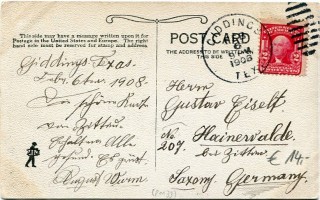 This side may have a message written upon it for
Postage in the United States and Europe. The right
hand side must be reserved for name and address.
POST CARD
THE ADDRESS TO BE WRITTEN ON
THIS SIDE
GIDDINGS
1908
TEX
Giddings Texas.
Febr. 6ten 1908.
Zittau.
Alle
gesund. Es grüsst
August
Herrn
Gustav Eiselt.
No. 207. Hainewalde.
bei Zittau
Saxony Germany.
€ 14,-